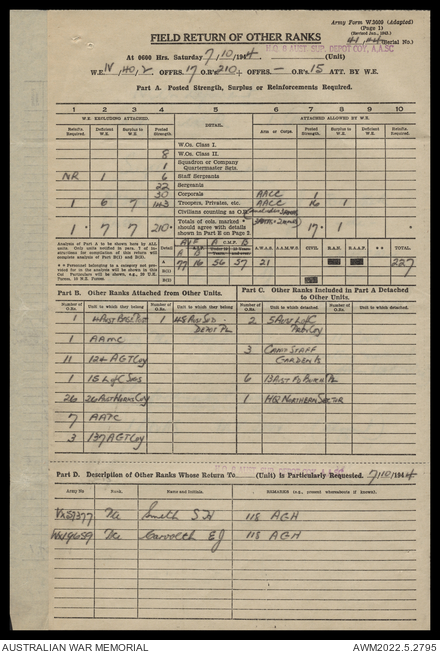 Army Form W.3009 (Adapted)
(Page 1)
(Revised Jan., 1943.)
(Serial No.)
FIELD RETURN OF OTHER RANKS
At 0600 Hrs. Saturday 7/10/1944. H.Q. 8 AUST. SUP. DEPOT COY, A.A.SC (Unit)
W.E. IV/40/2 OFFRS. 17 O.R's 210 + OFFRS. — O.R's. 15 ATT. BY W.E.
Part A. Posted Strength, Surplus or Reinforcements Required.
1 2 3 4 5 6 7 8 9 10
W.E. EXCLUDING ATTACHED. DETAIL. ATTACHED ALLOWED BY W.E.
Reinfts. Required. Deficient W.E. Surplus to W.E. Posted Strength. Arms or Corps. Posted Strength. Deficient W.E. Surplus to W.E. Reinfts. Required.
W.Os. Class I.
8 W.Os. Class II.
1 Squadron or Company Quartermaster Sgts.
NR 1 6 Staff Sergeants
22 Sergeants
30 Corporals AACC 1
1 6 7 143 Troopers, Privates, etc. AACC 16 1
Civilians counting as O.R.
1 7 7 210 Totals of cols. marked * should agree with details shown in Part E on Page 2. 17 1
Analysis of Part A to be shown here by ALL units.
AIF A C.M.F. B
A B
77 16 56 57 21 227
A.W.A.S. A.A.M.W.S. CIVIL R.A.N. R.A.A.F. ** TOTAL
Part B. Other Ranks Attached from Other Units. Part C. Other Ranks Included in Part A Detached to Other Units.
Number of O.Rs. Unit to which they belong Number of O.Rs. Unit to which they belong Number of O.Rs. Unit to which detached Number of O.Rs. Unit to which detached
1 4 Aust Base Post 1 48 Aust Sup. Depot Pl 2 5 Aust L of C Prov Coy
1 AAMC 3 Camp Staff Gardens Pt
11 124 AGT Coy
1 15 L of C Sigs 6 13 Aust Fd Butch Pl
26 26 Aust Works Coy 1 HQ Northern Sector
7 AATC
3 137 AGT Coy
Part D. Description of Other Ranks Whose Return To (Unit) Is Particularly Requested. 7/10/1944
Army No Rank. Name and Initials. REMARKS (e.g., present whereabouts if known).
VX59377 Pte Smith S H 118 AGH
WX19659 Pte E J 118 AGH
AUSTRALIAN WAR MEMORIAL AWM2022.5.2795